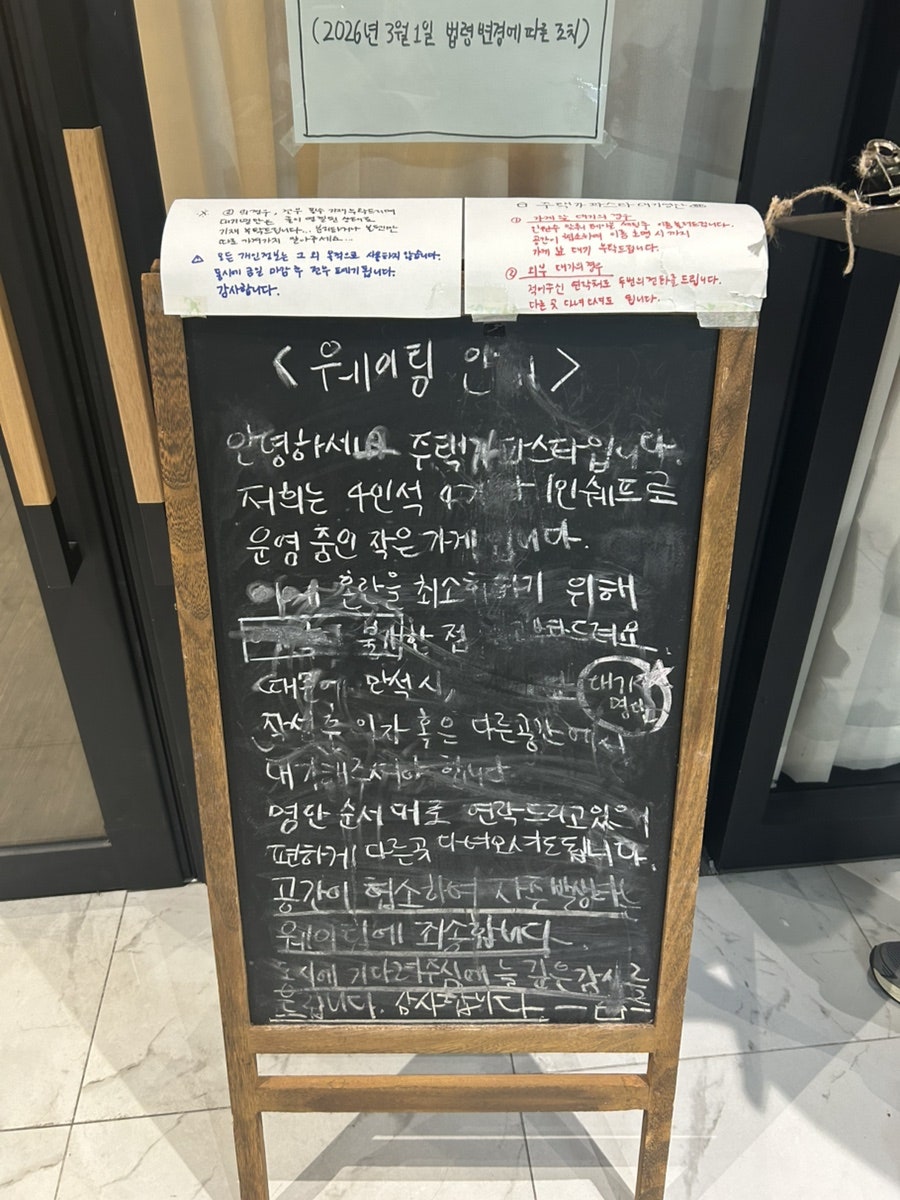 (2026년 3월 1일 법령 변경에 따른 조치)
② 외
대기명단은
기재 부탁드립니다...
따로 가져가지 말아주세요...
모든 개인정보는 그 외 목적으로 사용하지 않습니다.
동시에 금일 마감 후 전부 폐기 됩니다.
감사합니다.
주택가파스타
① 가게 앞 대기의 경우
인원수 맞춰 테이블 세팅후 이름 불러드립니다.
공간이 협소하여 이름 호명 시 까지
가게 앞 대기 부탁드립니다.
② 외부 대기의 경우
적어주신 연락처로 두번의 전화를 드립니다.
다른 곳 다녀오셔도 됩니다.
<웨이팅 안내>
안녕하세요 주택가파스타입니다.
저희는 4인석 1인쉐프로
운영 중인 작은가게 입니다.
혼란을 최소화하기 위해
불편한 점
때문에 만석 시,
대기자
명단
작성 후 의자 혹은 다른공간에서
대기해주셔야 합니다
명단 순서대로 연락드리고있으니
편하게 다른곳 다녀오셔도됩니다.
공간이 협소하여 자주 발생하는
웨이팅에 죄송합니다.
기다려주심에 늘 깊은감사를
드립니다. 감사합니다.